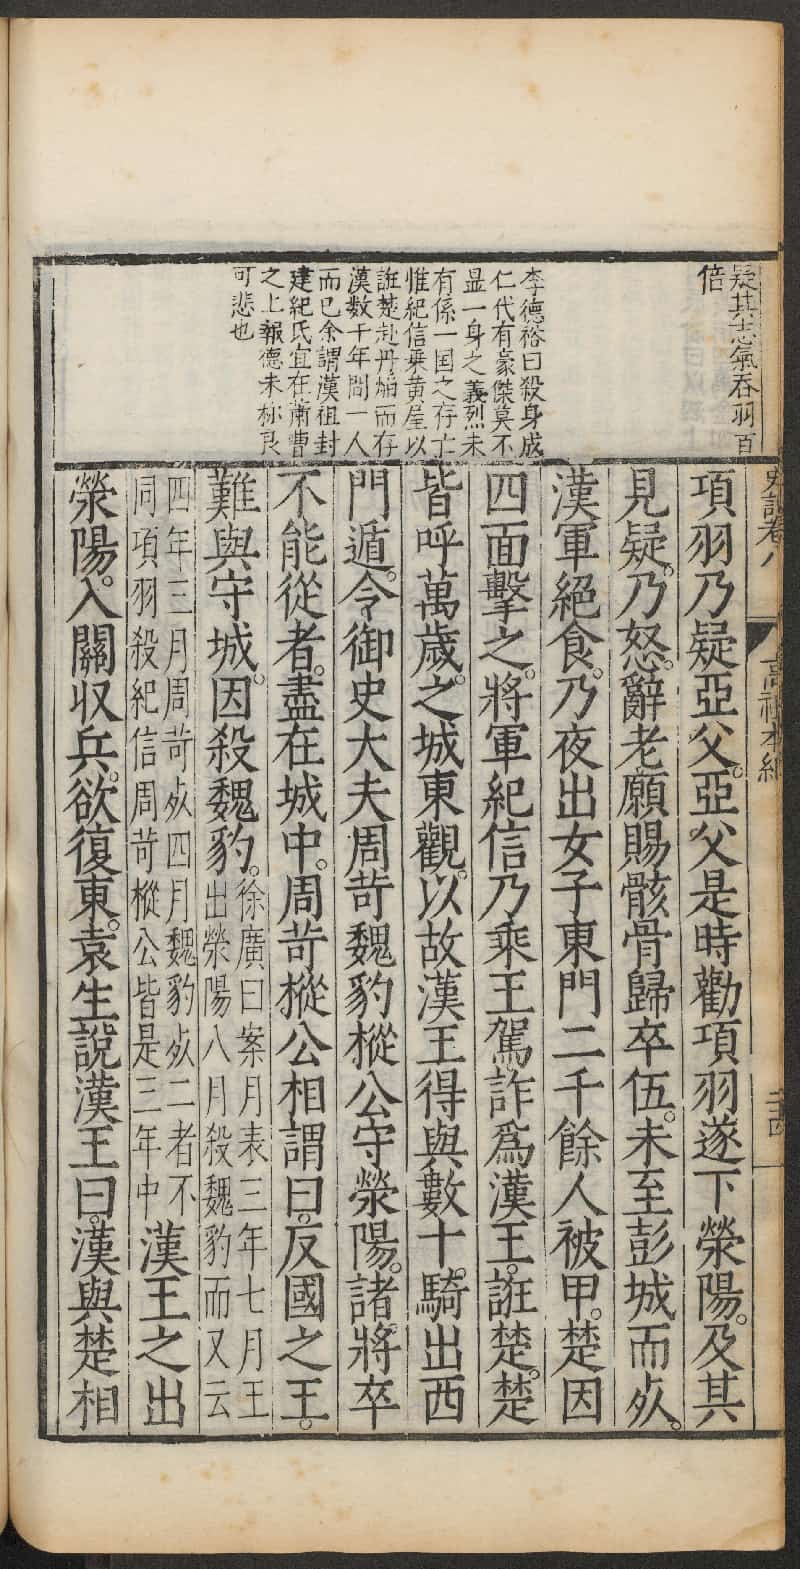 疑其志氣吞羽百
倍
李德裕曰殺身成
仁代有豪傑莫不
显一身之義烈未
有係一国之存亡
惟紀信乗黄屋以
誑楚赴丹焰而存
漢数千年間一人
而已余謂漢祖封
建紀氏宜在蕭曹
之上報德未称良
可悲也
史記卷八
高祖本紀
二十四
項羽乃疑亞父。亞父是時勸項羽遂下滎陽。及其
見疑。乃怒。辭老。願賜骸骨歸卒伍。未至彭城而𣦸。
漢軍絕食。乃夜出女子東門二千餘人被甲。楚因
四面擊之。將軍紀信乃乘王駕詐爲漢王。誑楚。楚
皆呼萬歲。之城東觀。以故漢王得與數十騎出西
門遁。令御史大夫周苛魏豹樅公守滎陽。諸將卒
不能從者。盡在城中。周苛樅公相謂曰。反國之王。
難與守城。因殺魏豹。徐廣曰案月表三年七月王
出滎陽八月殺魏豹而又云
四年三月周苛𣦸四月魏豹𣦸二者不
同項羽殺紀信周苛樅公皆是三年中漢王之出
滎陽。入關收兵。欲復東。袁生說漢王曰。漢與楚相